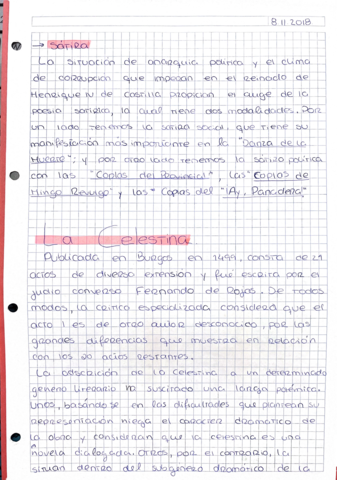 8 11 2018
→ Sátira
La situación de anarquía política y el clima
de corrupción que imperan en el reinado de
Henrique IV de Castilla propician el auge de la
poesía satírica, la cual tiene dos modalidades. Por
un lado tenemos la sátira social, que tiene su
manifestación más importante en la "Danza de la
Muerte"; y por otro lado tenemos la sátira política
con las "Coplas del Provincial", las "Coplas de
Mingo Revulgo" y las "Coplas del "¡Ay, Panadera!"
La Celestina
Publicada en Burgos en 1499, consta de 21
actos de diversa extensión y fue escrita por el
judío converso Fernando de Rojas. De todos
modos, la crítica especializada considera que el
acto I es de otro autor desconocido, por las
grandes diferencias que muestra en relación
con los 20 actos restantes.
La adscrición de la Celestina a un determinado
género literario ha suscitado una larga polémica.
Unos, basándose en las dificultades que plantean su
representación niega el carácter dramático de
la obra y consideran que la celestina es una
novela dialogada. Otros, por el contrario, la
sitúan dentro del subgénero dramático de la